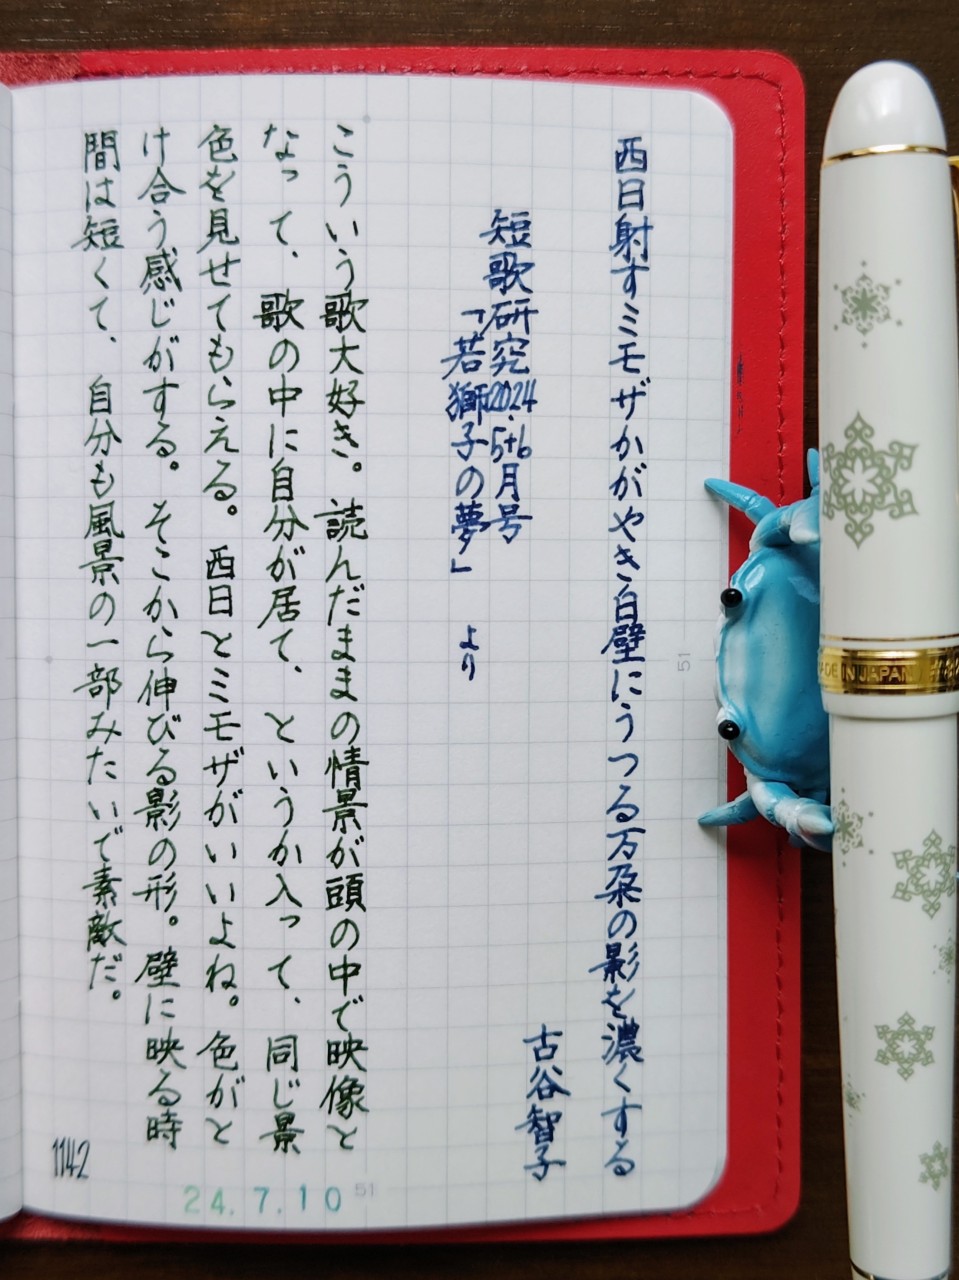 西日射すミモザかがやき白壁にうつる万朶の影を濃くする
古谷智子
短歌研究2024.5+6月号
「若獅子の夢」 より
こういう歌大好き。読んだままの情景が頭の中で映像と
なって、歌の中に自分が居て、というか入って、同じ景
色を見せてもらえる。西日とミモザがいいよね。色がと
け合う感じがする。そこから伸びる影の形。壁に映る時
間は短くて、自分も風景の一部みたいで素敵だ。
1142
24.7.10
51
51
MADE IN JAPAN